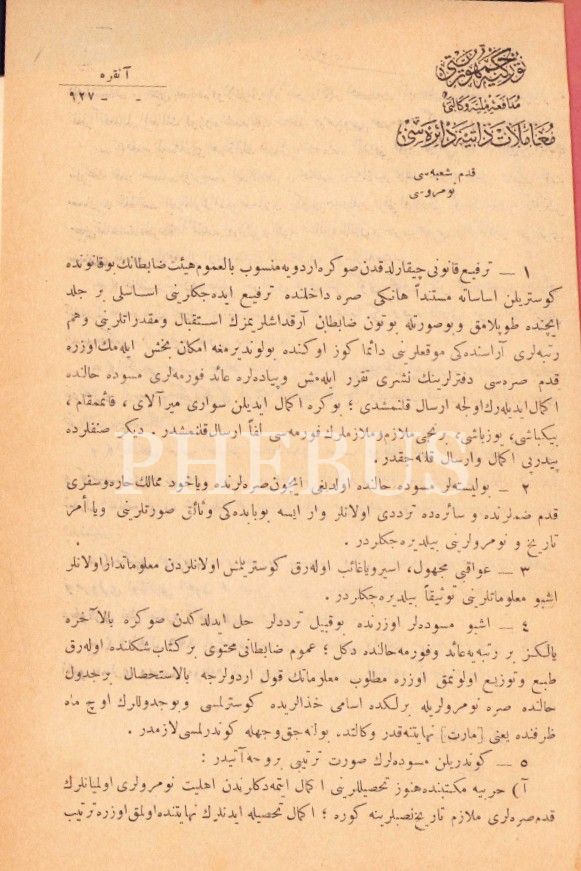 توركيه جمهوريتى
مدافعهٔ مليه وكالتى
معاملات ذاتيه دائره‌سى
قدم شعبه‌سى
نومروسى
آنقره
٩٢٧ - -
١ — ترفيع قانونى چيقارلدقدن صوكره اردويه منسوب بالعموم هيئت ضابطانك بو قانونده
كوستريلن اساساته مستنداً هانكى صره داخلنده ترفيع ايده‌جكلرينى اساسلى بر جلد
ايچنده طوپلامق و بوصورتله بوتون ضابطان آرقداشلريمزك استقبال و مقدراتلرينى وهم
رتبه‌لرى آراسنده‌كى موقعلرينى دائما كوز اوكنده بولونديرمغه امكان بخش ايله‌مك اوزره
قدم صره‌سى دفترلرينك نشرى تقرر ايله‌مش و پياده‌لره عائد فورمه‌لرى مسوده حالنده
اكمال ايديله‌رك اولجه ارسال قلنمشدى ؛ بوكره اكمال ايديلن سوارى ميرآلاى ، قائممقام ،
بيكباشى ، يوزباشى ، برنجى ملازم و ملازملرك فورمه‌سى لفاً ارسال قلنمشدر . ديكر صنفلرده
پيدرپى اكمال و ارسال قلنه‌جقدر .
٢ — بو ليسته‌لر مسوده حالنده اولديغى ايچون صره‌لرنده وياخود ممالك حاره و سفرى
قدم ضملرنده و سائره‌ده ترددى اولانلر وار ايسه بوبابده‌كى وثائق صورتلرينى ويا أمر
تاريخ و نومرولرينى بيلديره‌جكلردر .
٣ — عواقبى مجهول ، اسير وياغائب اوله‌رق كوستريلمش اولانلردن معلوماتدار اولانلر
اشبو معلوماتلرينى توثيقاً بيلديره‌جكلردر .
٤ — اشبو مسوده‌لر اوزرنده بوقبيل ترددلر حل ايدلدكدن صوكره بالآخره
يالكز بر رتبه‌يه عائد و فورمه حالنده دكل ؛ عموم ضابطانى محتوى بر كتاب شكلنده اوله‌رق
طبع و توزيع اولونمق اوزره مطلوب معلوماتك قول اردولرجه بالاستحصال بر جدول
حالنده صره نومرولريله برلكده اسامى حذالريده كوسترلمسى و بو جدوللرك اوچ ماه
ظرفنده يعنى [مارت] نهايتنه‌قدر وكالتده بولنه‌جق وجهله كوندرلمسى لازمدر .
٥ — كوندريلن مسوده‌لرك صورت ترتيبى بروجه آتيدر :
آ) حربيه مكتبنده هنوز تحصيللرينى اكمال ايتمه‌دكلرندن اهليت نومرولرى اوليانلرك
قدم صره‌لرى ملازم تاريخ نصبلرينه كوره ؛ اكمال تحصيله ايدنلرك نهايتنده اولمق اوزره ترتيب
PHEBUS